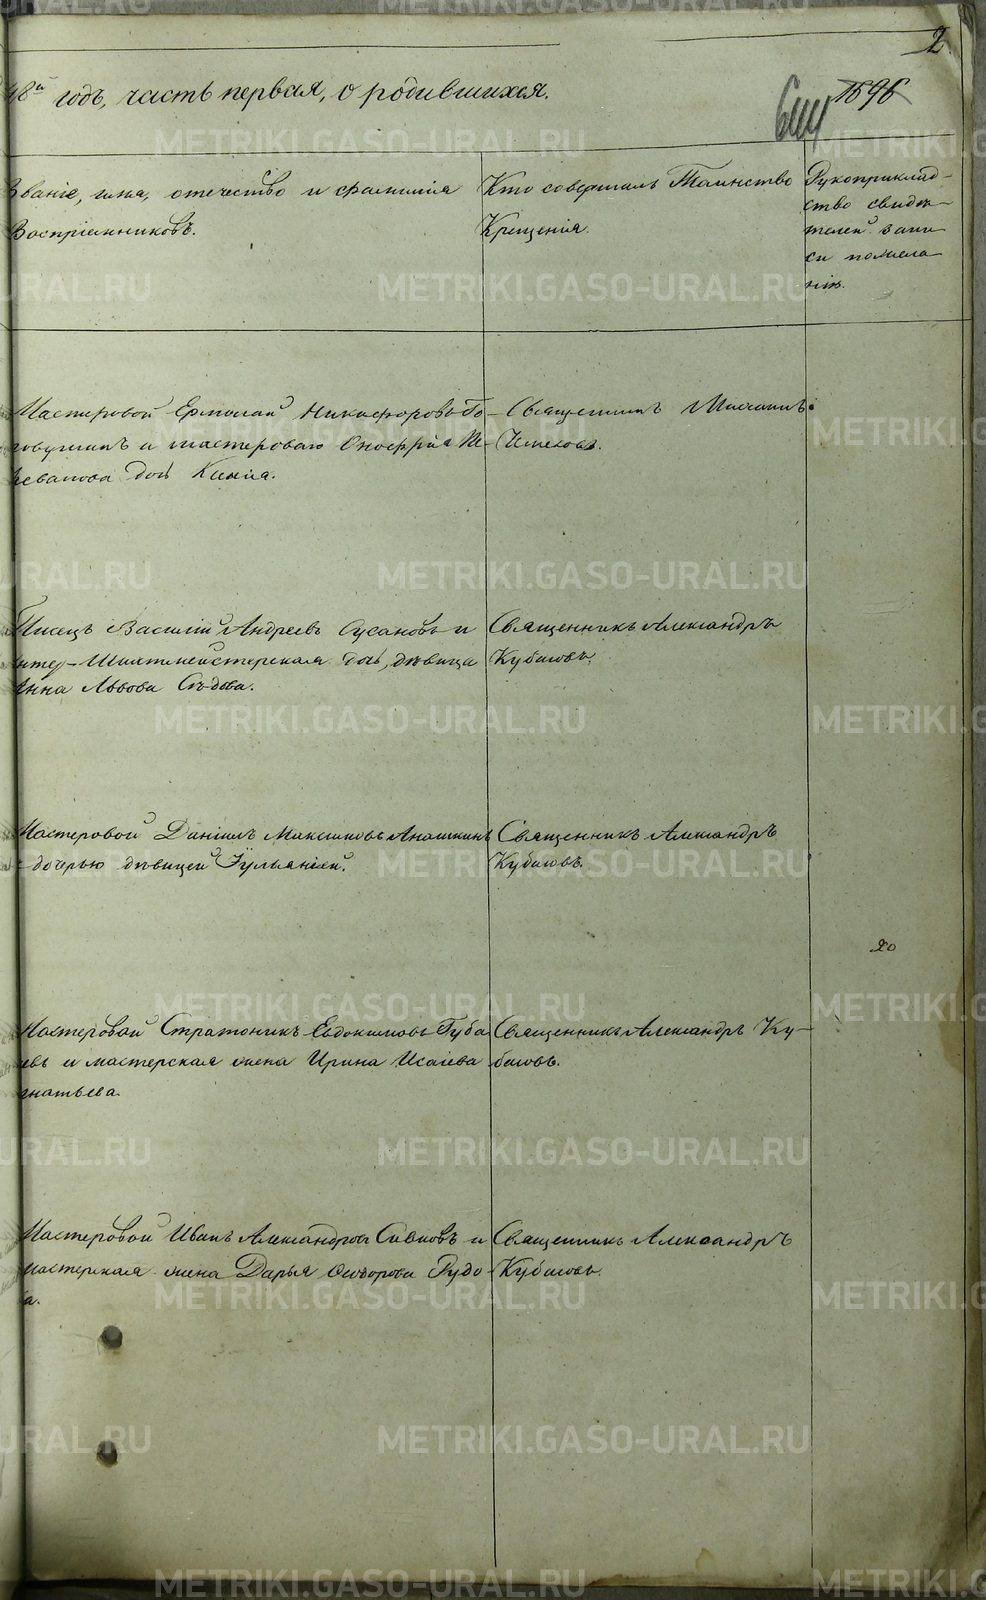 2
48й годъ, часть первая, о родившихся.
1896
Званіе, имя, отечество и фамилія
Воспріемниковъ.
Кто совершилъ Таинство
Крещенія.
Рукоприклад-
ство свидѣ-
телей запи-
си по жела-
нію.
Мастеровой Ермолай Никифоровъ
и мастероваго Онофрія
дочь
Священникъ Михаилъ
Писецъ Василій Андреевъ Сусановъ и
Шихтмейстерская дочь, дѣвица
Анна Львова Сѣдова.
Священникъ Александръ
Кубасовъ.
Мастеровой Даніилъ Максимовъ Аношкинъ
дочерью дѣвицей Іульяніей.
Священникъ Александръ
Кубасовъ.
20
Мастеровой Стратоникъ Евдокимовъ Губа
евъ и мастерская жена Ирина Исаіева
гнатьева.
Священникъ Александръ Ку-
басовъ.
Мастеровой Иванъ Александровъ Сивковъ и
мастерская жена Дарья Ѳедорова Рудо
а.
Священникъ Александръ
Кубасовъ.
METRIKI.GASO-URAL.RU